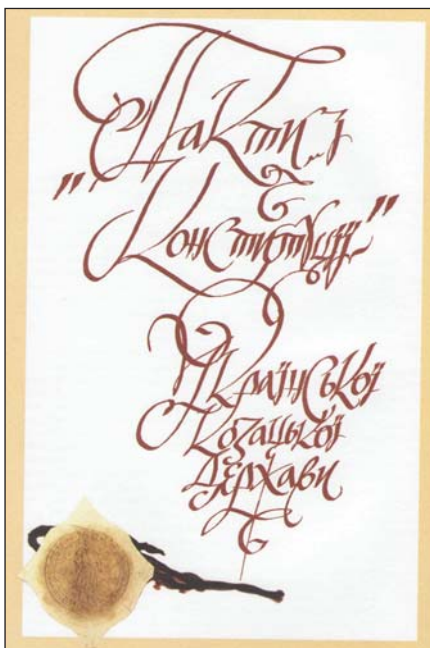 "Пакти і
Конституції"
Української
Козацької
Держави